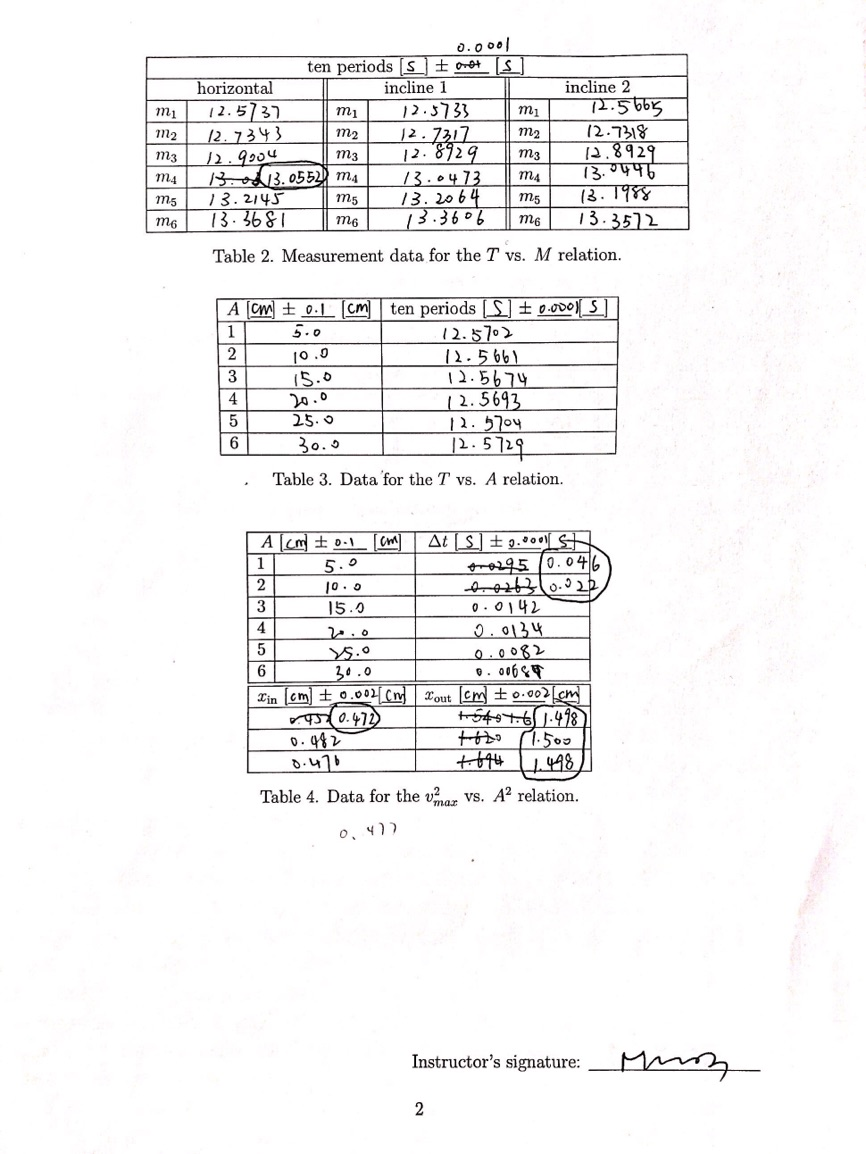 0.0001
ten periods [S] ± 0.01 [S]
horizontal incline 1 incline 2
m1 12.5737 m1 12.5733 m1 12.5665
m2 12.7343 m2 12.7317 m2 12.7318
m3 12.9004 m3 12.8929 m3 12.8929
m4 13.0552 m4 13.0473 m4 13.0446
m5 13.2145 m5 13.2064 m5 13.1988
m6 13.3681 m6 13.3606 m6 13.3572
Table 2. Measurement data for the T vs. M relation.
A [cm] ± 0.1 [cm] ten periods [S] ± 0.0001 [S]
1 5.0 12.5702
2 10.0 12.5661
3 15.0 12.5674
4 20.0 12.5693
5 25.0 12.5704
6 30.0 12.5729
Table 3. Data for the T vs. A relation.
A [cm] ± 0.1 [cm] Δt [S] ± 0.0001 [S]
1 5.0 0.0295 0.046
2 10.0 0.0263 0.022
3 15.0 0.0142
4 20.0 0.0134
5 25.0 0.0082
6 30.0
xin [cm] ± 0.002 [cm] xout [cm] ± 0.002 [cm]
0.472 1.498
0.482 1.620 1.500
0.476 1.694 1.498
Table 4. Data for the v²max vs. A² relation.
0.477
Instructor's signature:
2